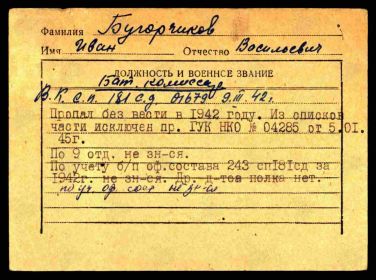 Фамилия Бугорчиков
Имя Иван Отчество Васильевич
ДОЛЖНОСТЬ И ВОЕННОЕ ЗВАНИЕ
Бат. комиссар
В.К. с.п. 181 с.д. 01679 9.III.42 г.
Пропал без вести в 1942 году. Из списков
части исключен пр. ГУК НКО № 04285 от 5.01.
45г.
По 9 отд. не зн-ся.
По учету б/п оф.состава 243 сп181сд за
1942г. не зн-ся. Др. д-тов полка нет.
по уч. оф. сост не зн-ся